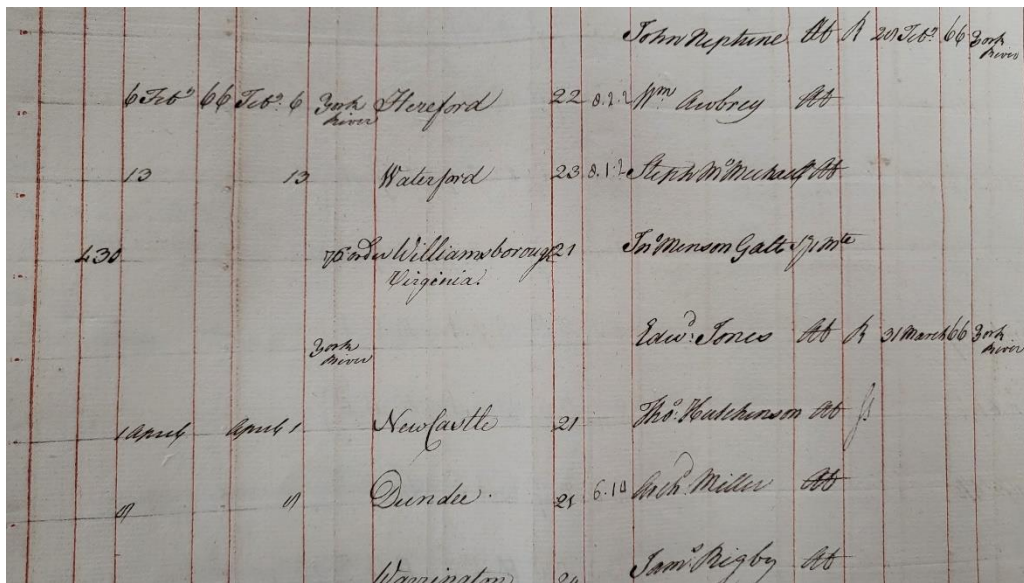 John Neptune Ab R 20 Feb.y 66 York River
6 Feb.y 66 Feb.y 6 York River Hereford 22 8.2.2 Wm Awbrey Ab
13 13 Waterford 23 8.1.2 Steph McMechael Ab
430 Williamsborough Virginia 21 Jno Minson Galt
York River Edwd Jones Ab R 31 March 66 York River
1 April April 1 NewCastle 21 Thos Hutchinson Ab
Dundee 21 6.10 Archd Miller Ab
Warrington 24 Jams Rigby Ab